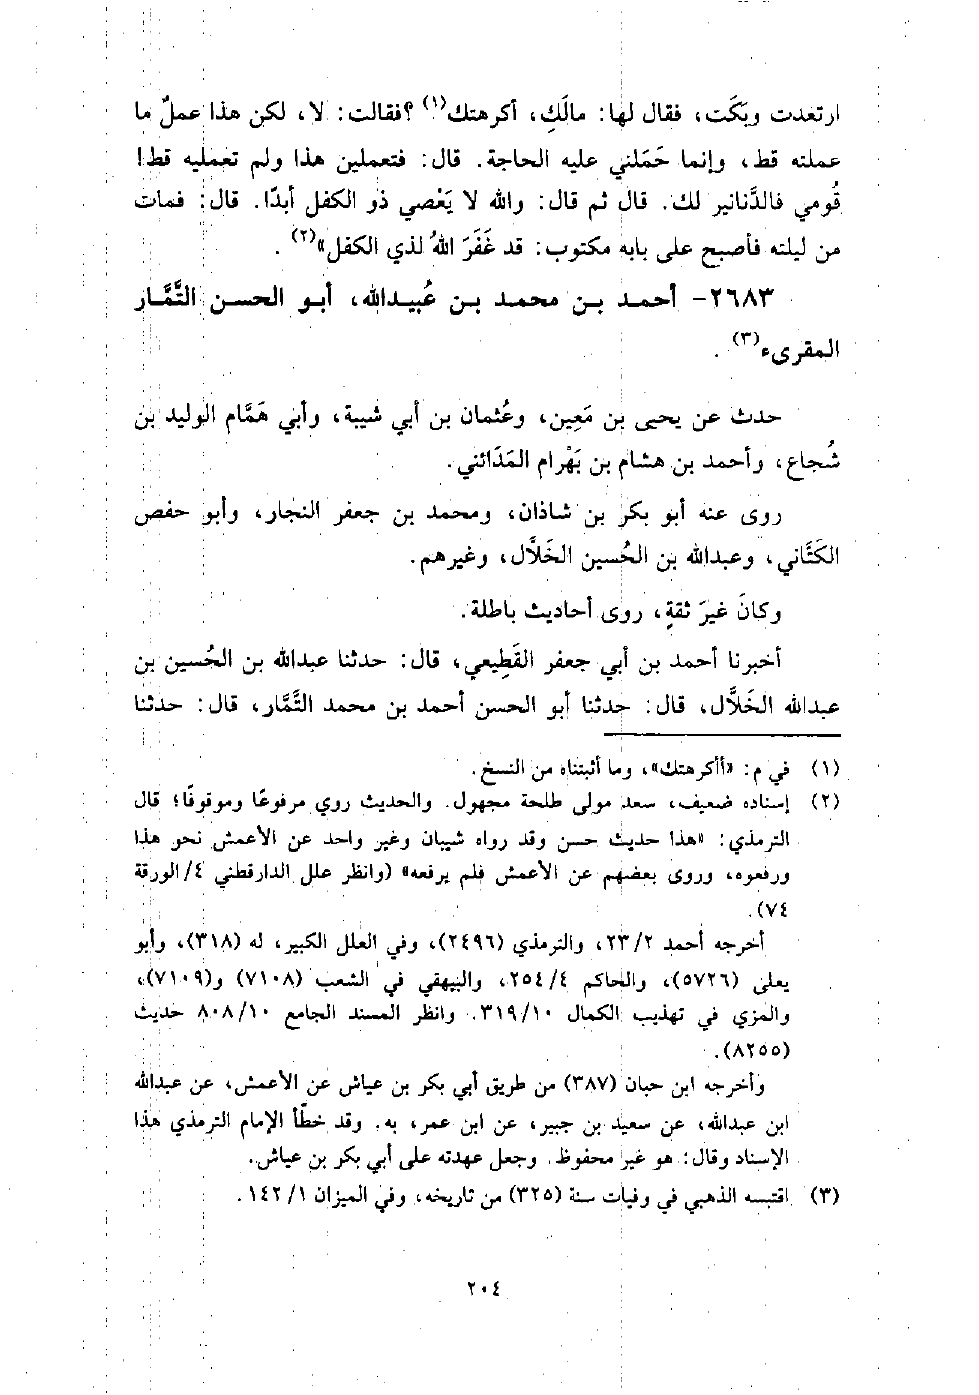 ارتعدت وبَكَت، فقال لها: مالَكِ، أكرهتك(١)؟ فقالت: لا، لكن هذا عملٌ ما
عملته قط، وإنما حَمَلني عليه الحاجة. قال: فتعملين هذا ولم تعمليه قط!
قُومي فالدَّنانير لك. قال ثم قال: والله لا يَعْصي ذو الكفل أبدًا. قال: فمات
من ليلته فأصبح على بابه مكتوب: قد غَفَرَ اللهُ لذي الكفل»(٢).
٢٦٨٣- أحمد بن محمد بن عُبيدالله، أبو الحسن التَّمَّار
المقرىء(٣).
حدث عن يحيى بن مَعِين، وعُثمان بن أبي شيبة، وأبي هَمَّام الوليد بن
شُجاع، وأحمد بن هشام بن بَهْرام المَدَائني.
روى عنه أبو بكر بن شاذان، ومحمد بن جعفر النجار، وأبو حفص
الكَتَّاني، وعبدالله بن الحُسين الخَلَّال، وغيرهم.
وكانَ غيرَ ثقةٍ، روى أحاديث باطلة.
أخبرنا أحمد بن أبي جعفر القَطِيعي، قال: حدثنا عبدالله بن الحُسين بن
عبدالله الخَلَّال، قال: حدثنا أبو الحسن أحمد بن محمد التَّمَّار، قال: حدثنا
(١) في م: «أأكرهتك»، وما أثبتناه من النسخ.
(٢) إسناده ضعيف، سعد مولى طلحة مجهول. والحديث روي مرفوعًا وموقوفًا؛ قال
الترمذي: «هذا حديث حسن وقد رواه شيبان وغير واحد عن الأعمش نحو هذا
ورفعوه، وروى بعضهم عن الأعمش فلم يرفعه» (وانظر علل الدارقطني ٤/ الورقة
٧٤).
أخرجه أحمد ٢/ ٢٣، والترمذي (٢٤٩٦)، وفي العلل الكبير، له (٣١٨)، وأبو
يعلى (٥٧٢٦)، والحاكم ٤/ ٢٥٤، والبيهقي في الشعب (٧١٠٨) و(٧١٠٩)،
والمزي في تهذيب الكمال ١٠/ ٣١٩. وانظر المسند الجامع ١٠/ ٨٠٨ حديث
(٨٢٥٥).
وأخرجه ابن حبان (٣٨٧) من طريق أبي بكر بن عياش عن الأعمش، عن عبدالله
ابن عبدالله، عن سعيد بن جبير، عن ابن عمر، به. وقد خطَّأ الإمام الترمذي هذا
الإسناد وقال: هو غير محفوظ. وجعل عهدته على أبي بكر بن عياش.
(٣) اقتبسه الذهبي في وفيات سنة (٣٢٥) من تاريخه، وفي الميزان ١/ ١٤٢.
٢٠٤